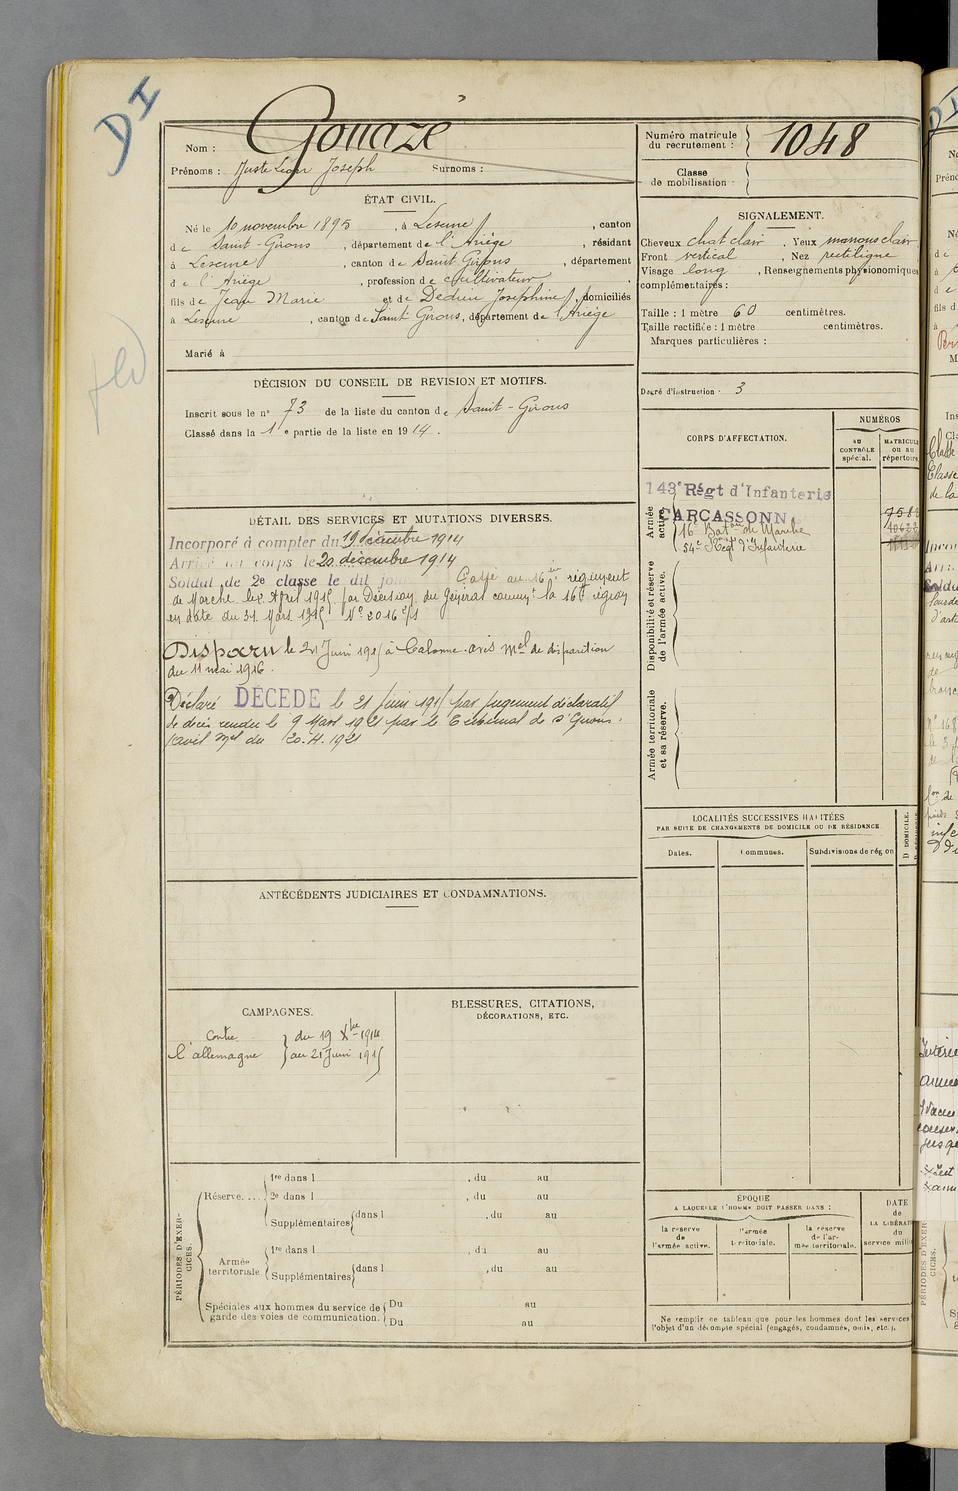 DI
Nom : Gouazé
Prénoms : Juste Léon Joseph Surnoms :
Numéro matricule du recrutement : 1048
Classe de mobilisation :
ÉTAT CIVIL.
Né le 10 novembre 1895, à Lescure, canton
de Saint-Girons, département de l'Ariège, résidant
à Lescure, canton de Saint Girons, département
de l'Ariège, profession de cultivateur,
fils de Jean Marie et de Dedieu Josephine, domiciliés
à Lescure, canton de Saint Girons, département de l'Ariège
Marié à
SIGNALEMENT.
Cheveux chat clair, Yeux marrons clair
Front vertical, Nez rectiligne
Visage long, Renseignements physionomiques
complémentaires :
Taille : 1 mètre 60 centimètres.
Taille rectifiée : 1 mètre centimètres.
Marques particulières :
Degré d'instruction : 3
DÉCISION DU CONSEIL DE REVISION ET MOTIFS.
Inscrit sous le n° 73 de la liste du canton de Saint-Girons
Classé dans la 1e partie de la liste en 1914.
DÉTAIL DES SERVICES ET MUTATIONS DIVERSES.
Incorporé à compter du 19 décembre 1914
Arrivé au corps le 20 décembre 1914
Soldat de 2e classe le dit jour Passé au 16e régiment
de Marche le 2 Avril 1915 par Décision du Général commt la 16e région
en date du 31 Mars 1915. N° 2016
Disparu le 21 Juin 1915 à Calonne avis mel de disparition
du 11 mai 1916.
Déclaré DÉCÉDÉ le 21 juin 1915 par jugement déclaratif
de décès rendu le 9 Mars 1921 par le Tribunal de St Girons.
(avis mel du 20.4.1921
CORPS D'AFFECTATION.
NUMÉROS
au CONTRÔLE spécial.
MATRICULE ou au répertoire.
Armée active.
143e Régt d'Infanterie
CARCASSONN
16e Bataon de Marche
54e Régt d'Infanterie
Disponibilité et réserve de l'armée active.
Armée territoriale et sa réserve.
LOCALITÉS SUCCESSIVES HABITÉES
PAR SUITE DE CHANGEMENTS DE DOMICILE OU DE RÉSIDENCE.
Dates. Communes. Subdivisions de région D DOMICILE.
ANTÉCÉDENTS JUDICIAIRES ET CONDAMNATIONS.
CAMPAGNES.
Contre l'allemagne
du 19 Xbre 1914
au 21 Juin 1915
BLESSURES, CITATIONS,
DÉCORATIONS, ETC.
PÉRIODES D'EXERCICES.
Réserve....
1re dans l , du au
2e dans l , du au
Supplémentaires dans l , du au
Armée territoriale.
1re dans l , du au
Supplémentaires dans l , du au
Spéciales aux hommes du service de garde des voies de communication.
Du au
Du au
ÉPOQUE
A LAQUELLE L'HOMME DOIT PASSER DANS :
la réserve de l'armée active.
l'armée territoriale.
la réserve de l'armée territoriale.
DATE
de
LA LIBÉRAT
du
service milit
Ne remplir ce tableau que pour les hommes dont les services
l'objet d'un décompte spécial (engagés, condamnés, omis, etc.).